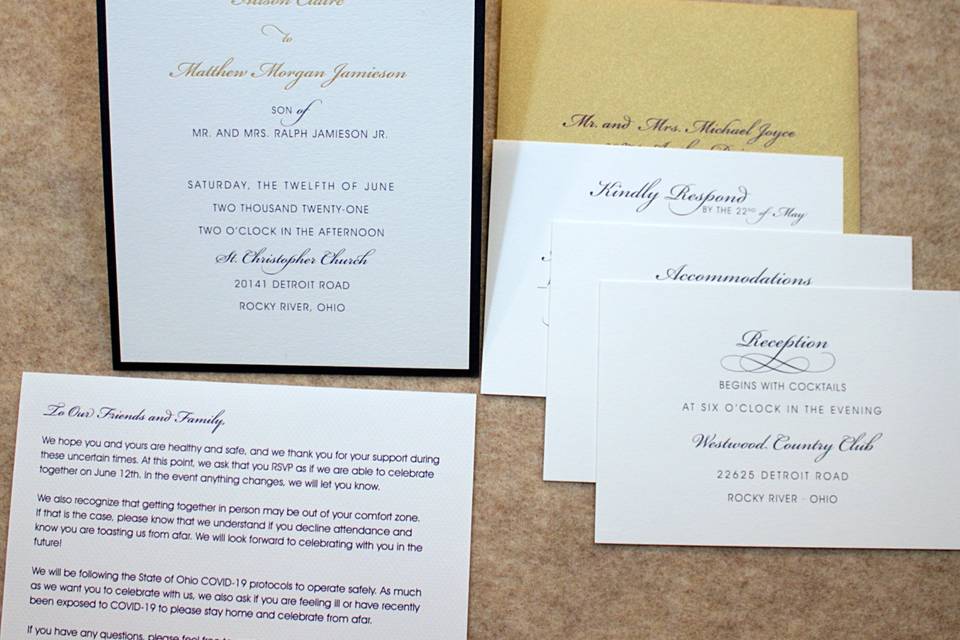 Alison Claire
to
Matthew Morgan Jamieson
SON of
MR. AND MRS. RALPH JAMIESON JR.
SATURDAY, THE TWELFTH OF JUNE
TWO THOUSAND TWENTY-ONE
TWO O'CLOCK IN THE AFTERNOON
St. Christopher Church
20141 DETROIT ROAD
ROCKY RIVER, OHIO
Mr. and Mrs. Michael Joyce
Kindly Respond
BY THE 22ND of May
Accommodations
Reception
BEGINS WITH COCKTAILS
AT SIX O'CLOCK IN THE EVENING
Westwood Country Club
22625 DETROIT ROAD
ROCKY RIVER · OHIO
To Our Friends and Family,
We hope you and yours are healthy and safe, and we thank you for your support during
these uncertain times. At this point, we ask that you RSVP as if we are able to celebrate
together on June 12th. In the event anything changes, we will let you know.
We also recognize that getting together in person may be out of your comfort zone.
If that is the case, please know that we understand if you decline attendance and
know you are toasting us from afar. We will look forward to celebrating with you in the
future!
We will be following the State of Ohio COVID-19 protocols to operate safely. As much
as we want you to celebrate with us, we also ask if you are feeling ill or have recently
been exposed to COVID-19 to please stay home and celebrate from afar.
If you have any questions, please feel free to